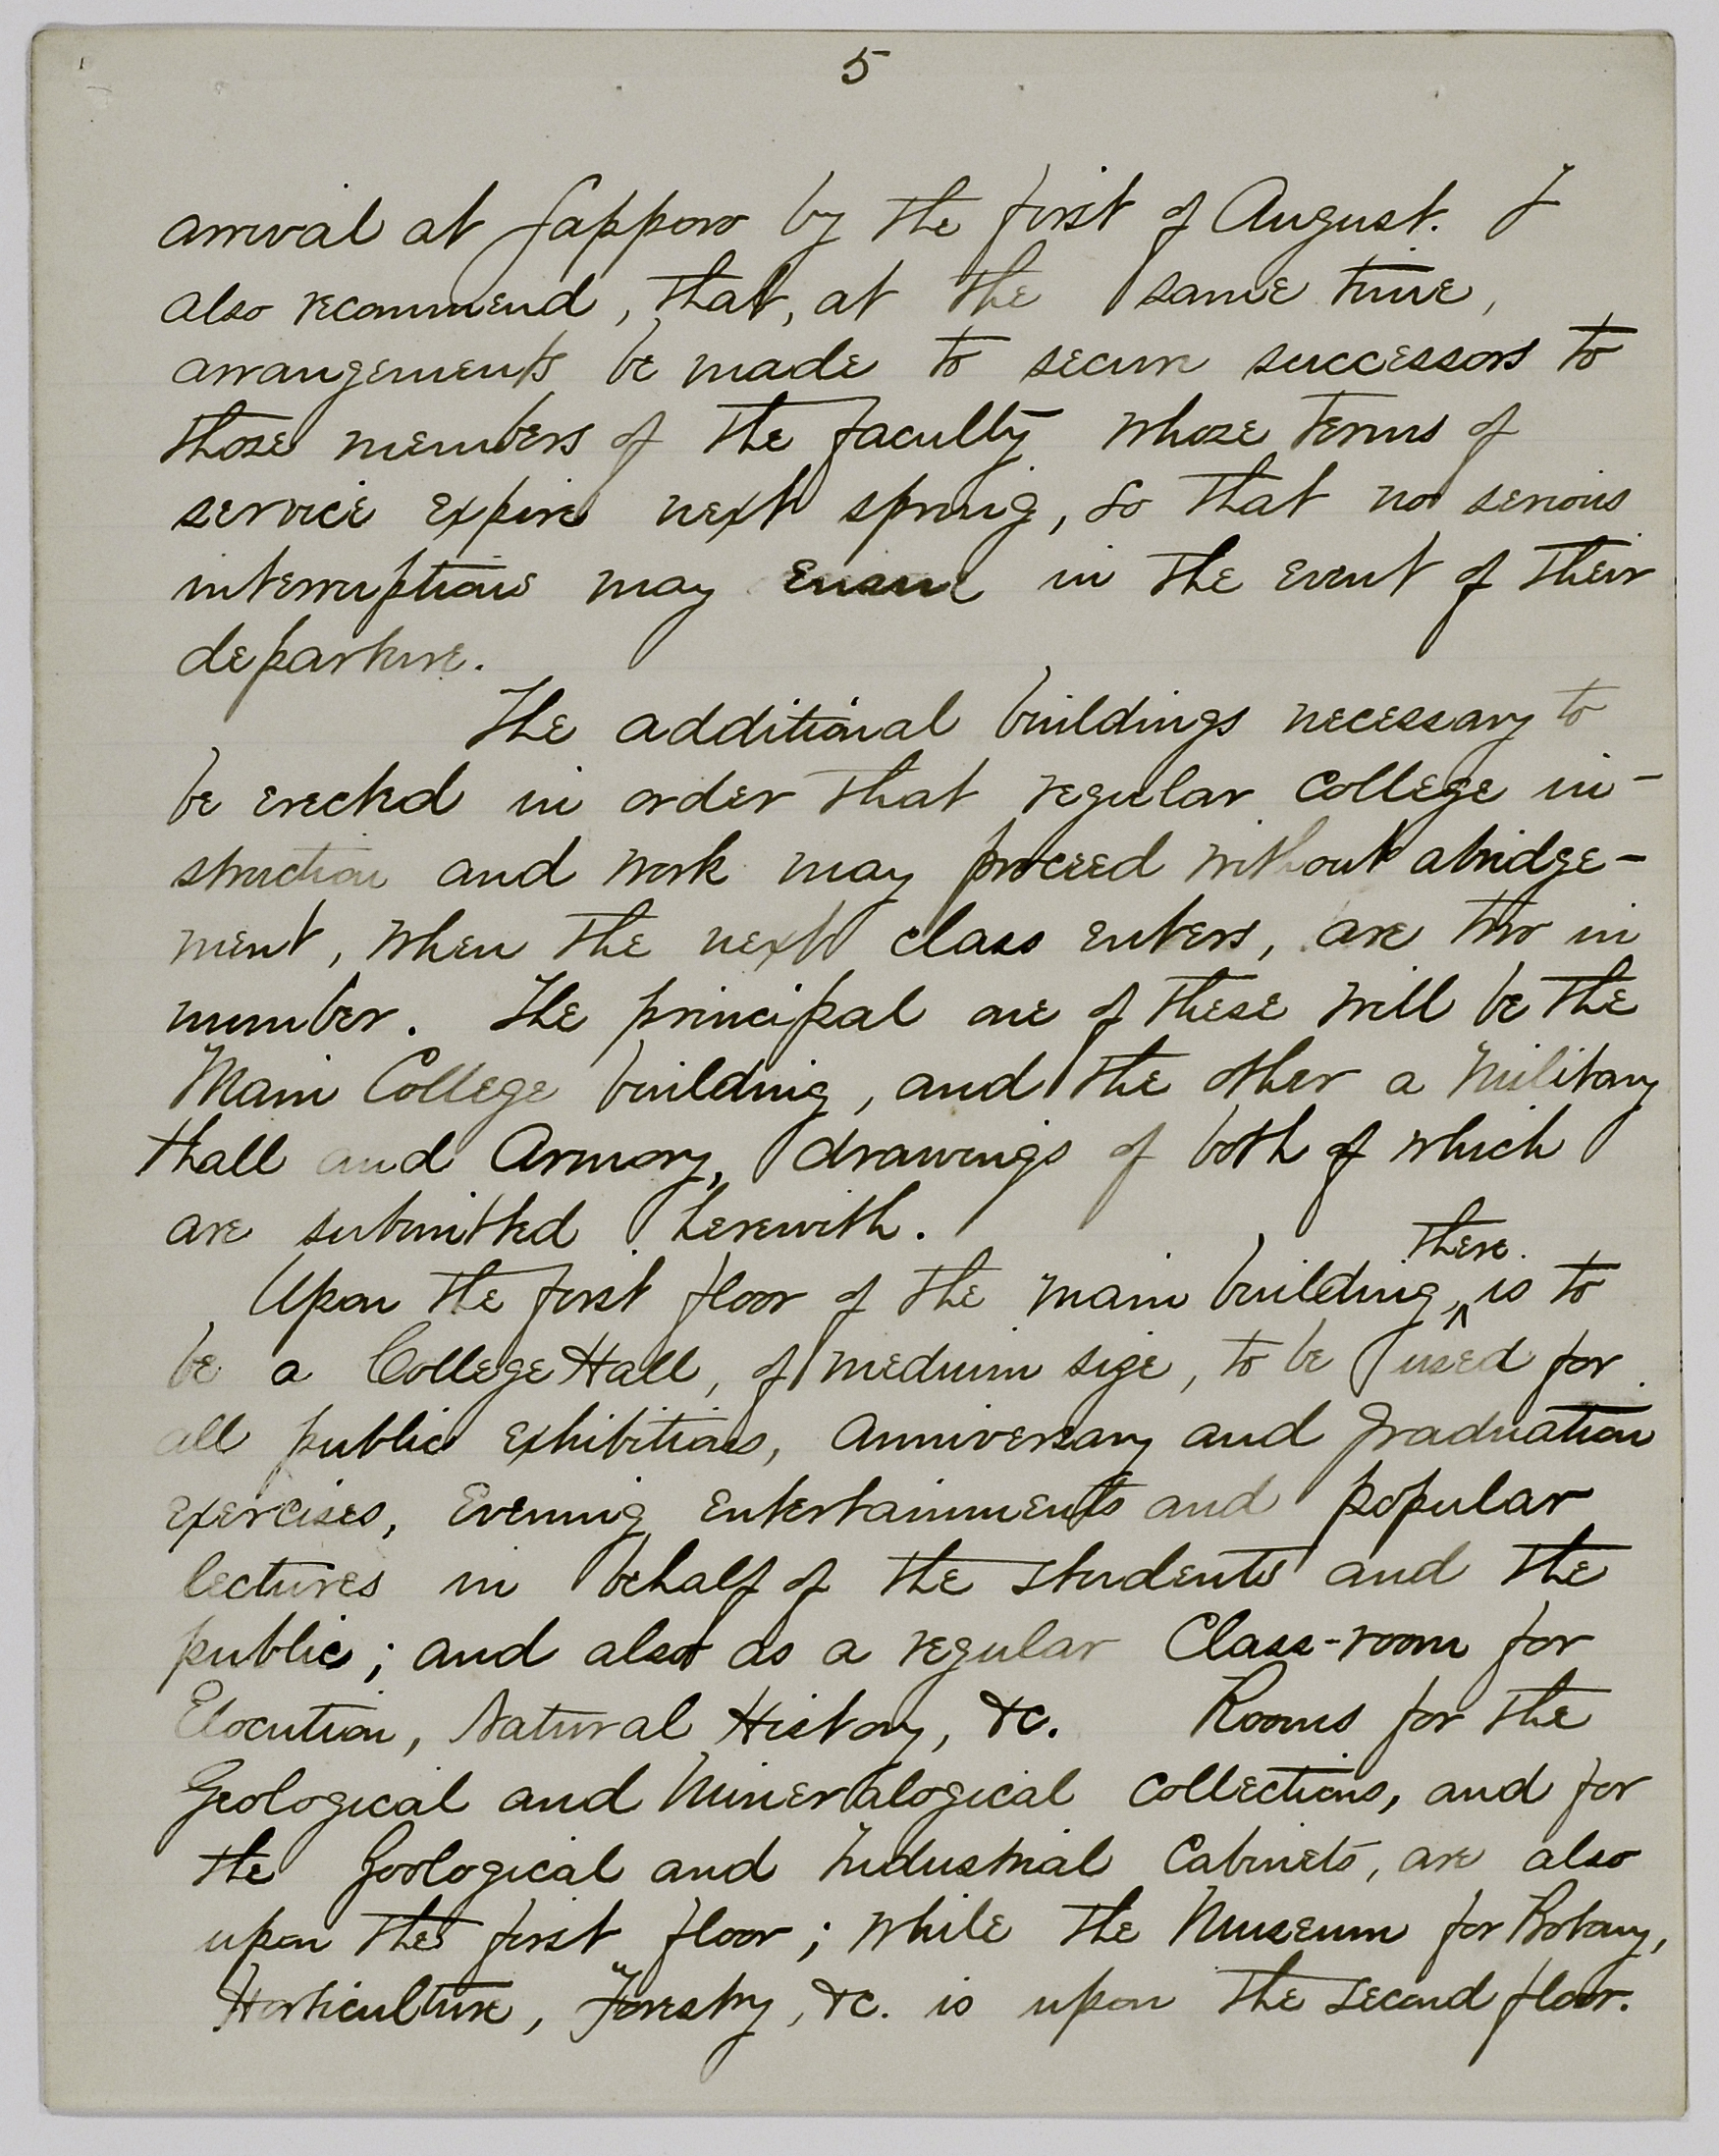 5
arrival at Sapporo by the first of August. I
also recommend, that, at the same time,
arrangements be made to secure successors to
those members of the faculty whose terms of
service expire next spring, so that no serious
interruptions may ensue in the event of their
departure.
The additional buildings necessary to
be erected in order that regular college in-
struction and work may proceed without abridge-
ment, when the next class enters, are two in
number. The principal one of these will be the
Main College building, and the other a Military
Hall and Armory, drawings of both of which
are submitted herewith.
there
Upon the first floor of the main building ^ is to
be a College Hall, of medium size, to be used for
all public exhibitions, anniversary and graduation
exercises, evening entertainments and popular
lectures in behalf of the students and the
public; and also as a regular Class-room for
Elocution, Natural History, &c. Rooms for the
Geological and Mineralogical collections, and for
the Zoological and Industrial Cabinets, are also
upon the first floor; while the Museum for Botany,
Horticulture, Forestry, &c. is upon the second floor.